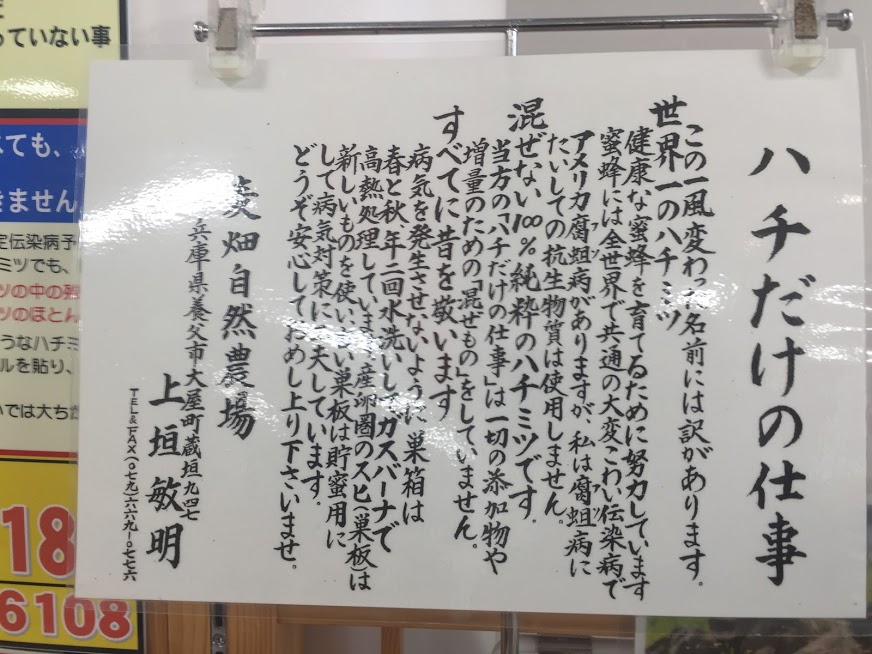 ハチだけの仕事
この一風変わった名前には訳があります。
世界一のハチミツ
健康な蜜蜂を育てるために努力しています
蜜蜂には全世界で共通の大変こわい伝染病で
アメリカ腐蛆病がありますが、私は腐蛆病に
フソ
フソ
たいしての抗生物質は使用しません。
混ぜない100%純粋のハチミツです。
当方の「ハチだけの仕事」は一切の添加物や
増量のための「混ぜもの」をしていません。
すべてに昔を敬います
病気を発生させないように巣箱は
春と秋、年二回水洗いしてガスバーナで
高熱処理しています。産卵圏のスヒ(巣板)は
新しいものを使い、古い巣板は貯蜜用に
して病気対策に工夫しています。
どうぞ安心しておめし上り下さいませ。
畑自然農場
兵庫県養父市大屋町蔵垣九四七
上垣敏明
TEL&FAX(〇七九)六六九-〇七七六
っていない事
ても、
きません
定伝染病予
ミツでも、
ツの中の残
ツのほとん
うなハチミ
ルを貼り、
いでは大ちが
18
6108